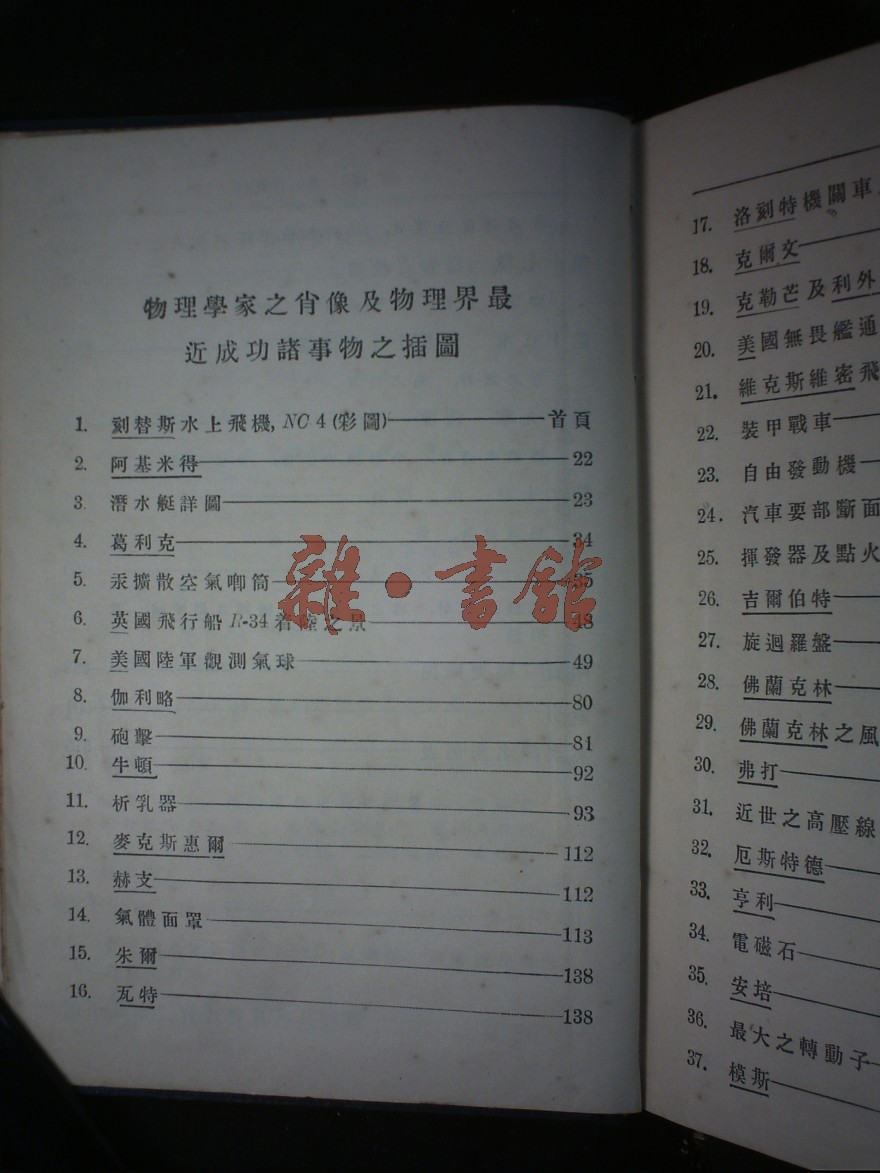 物理學家之肖像及物理界最
近成功諸事物之插圖
1. 刻替斯水上飛機, NC 4 (彩圖)——首頁
2. 阿基米得——22
3. 潛水艇詳圖——23
4. 葛利克——34
5. 汞擴散空氣唧筒——35
6. 英國飛行船 R-34 着陸之景——48
7. 美國陸軍觀測氣球——49
8. 伽利略——80
9. 砲擊——81
10. 牛頓——92
11. 析乳器——93
12. 麥克斯惠爾——112
13. 赫支——112
14. 氣體面罩——113
15. 朱爾——138
16. 瓦特——138
雜·書舘
17. 洛刻特機關車
18. 克爾文——
19. 克勒芒及利外
20. 美國無畏艦通
21. 維克斯維密飛
22. 裝甲戰車——
23. 自由發動機—
24. 汽車要部斷面
25. 揮發器及點火
26. 吉爾伯特——
27. 旋迴羅盤——
28. 佛蘭克林——
29. 佛蘭克林之風
30. 弗打——
31. 近世之高壓線
32. 厄斯特德——
33. 亨利——
34. 電磁石——
35. 安培——
36. 最大之轉動子—
37. 模斯——